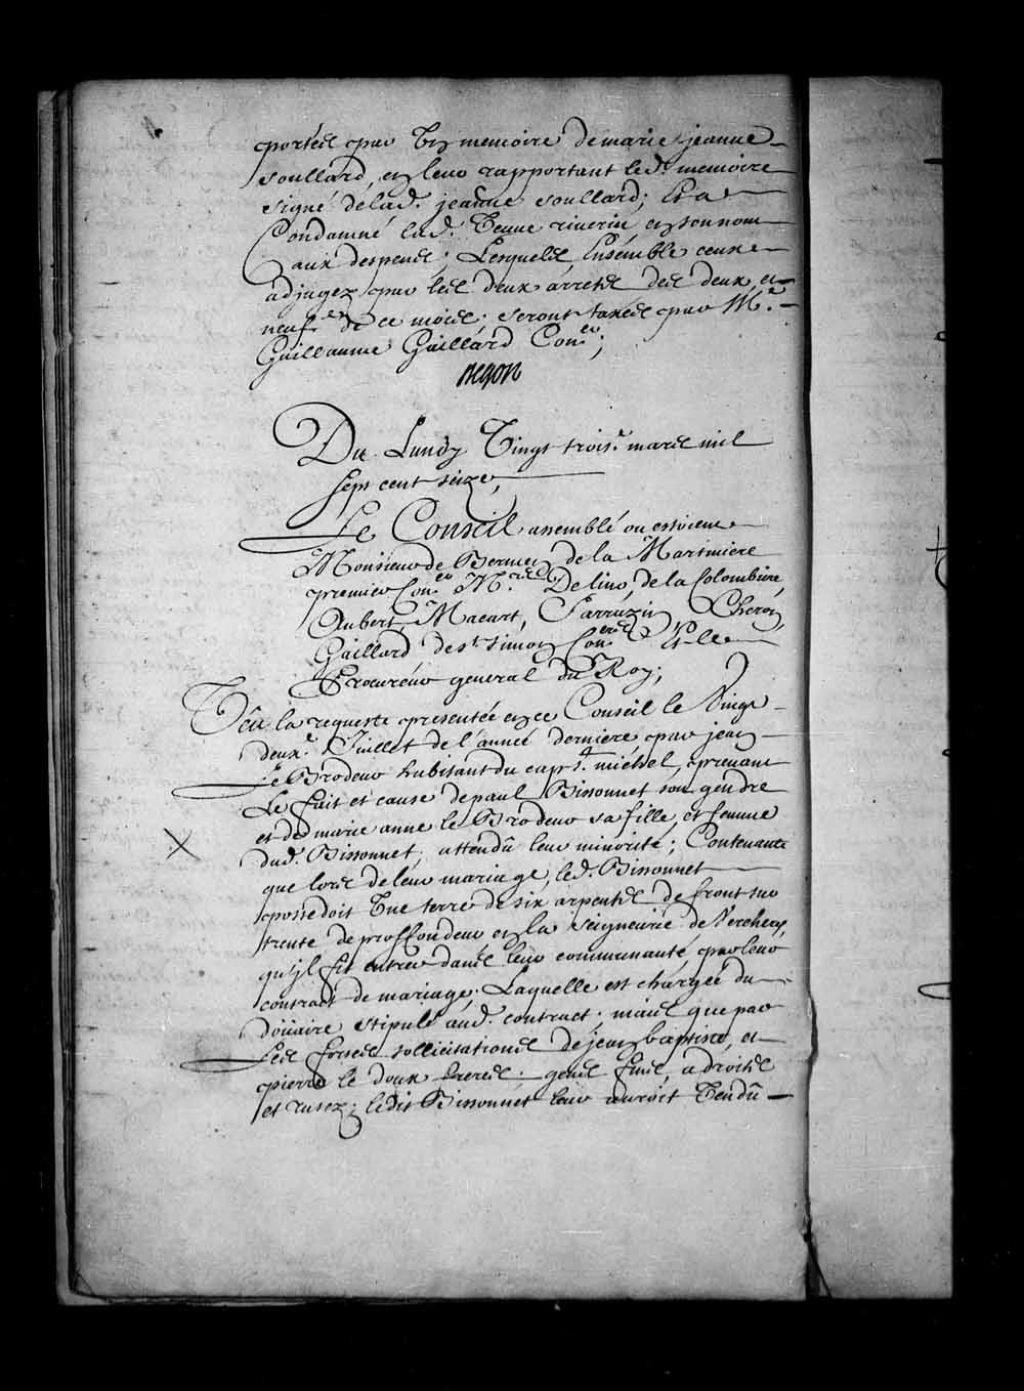 portées par un memoire de marie jeanne
Soullard, en leur rapportant led. memoire
signé de lad. jeanne Soullard; Et a
Condamné lad. Veuve riverin en son nom
aux despens; Lesquels, Ensemble ceux
adjugez par les deux arrests des deux et
neuf.e de ce mois; seront taxés par M.e
Guillaume Gaillard Con.er;
Begon
Du Lundy Vingt trois.e mars mil
sept cent seize,
Le Conseil assemblé ou estoient
Monsieur de Bermen de la Martiniere
premier Con.er M.rs Delino, de la Colombiere,
Aubert, Macart, Sarrazin Cheron,
Gaillard de S.t Simon Con.ers Et le
Procureur general du Roy;
Veu la requeste presentée en ce Conseil le Vingt
deux.e Juillet de l'année derniere, par jean
Le Brodeur habitant du cap S.t michel, prenant
Le fait et cause de paul Bissonnet son gendre
et de marie anne le Brodeur sa fille, et femme
dud. Bissonnet, attendu leur minorité; Contenante
que lors de leur mariage, led. Bissonnet
possedoit Une terre de six arpents de front sur
trente de proffondeur en la Seigneurie de Vercheres,
qu'jl fit entrer dans leur communauté, par leur
contract de mariage; Laquelle est chargée du
doüaire stipulé aud. contract. mais que par
Les fortes sollicitations de jean baptiste, et
pierre le doux freres. gens fins, adroits
et rusez; ledit Bissonnet leur auroit Vendu